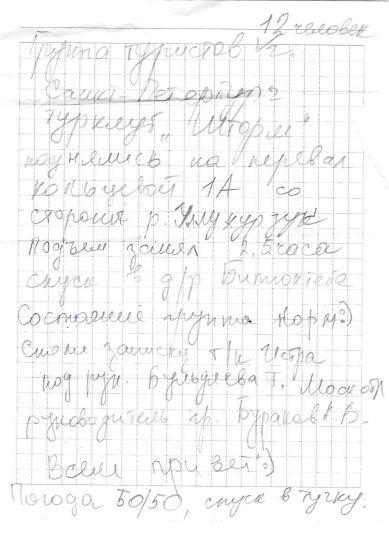 12 человек
Группа туристов г.
Санкт-Петербург
турклуб „Шторм"
поднялись на перевал
кольцевой 1А со
стороны р. Уллукурзук
Подъем занял 2,5 часа
спуск в д/р Битюктебе
Состояние группы норм:)
Сняли записку т/к Истра
под рук. Бульдяева Г. Моск обл
руководитель гр. Бураков А.В.
Всем привет:)
Погода 50/50, спуск в тучку.